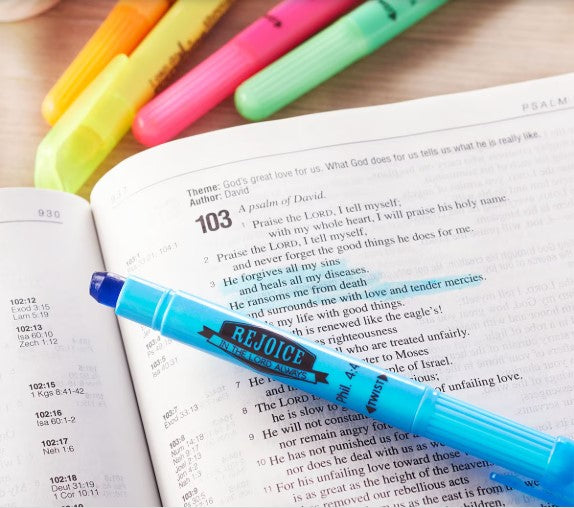 PSALM
930
Theme: God's great love for us. What God does for us tells us what he is really like.
Author: David
103
A psalm of David.
1 Praise the LORD, I tell myself;
with my whole heart, I will praise his holy name.
2 Praise the LORD, I tell myself,
and never forget the good things he does for me.
3 He forgives all my sins
and heals all my diseases.
He ransoms me from death
and surrounds me with love and tender mercies.
my life with good things.
is renewed like the eagle's!
righteousness
all who are treated unfairly.
to Moses
of Israel.
7
8 The LORD
of unfailing love.
he is slow to
9 He will not constantly
nor remain angry
10 He has not punished us for
nor does he deal with us as we
11 For his unfailing love toward those
is as great as the height of the heavens
removed our rebellious acts
as the east is from
102:12
Exod 3:15
Lam 5:19
102:13
Isa 60:10
Zech 1:12
102:15
1 Kgs 8:41-42
102:16
Isa 60:1-2
102:17
Neh 1:6
102:18
Deut 31:19
1 Cor 10:11
103:7
Exod 33:13
103:8
REJOICE
IN THE LORD ALWAYS
Phil. 4:4
TWIST